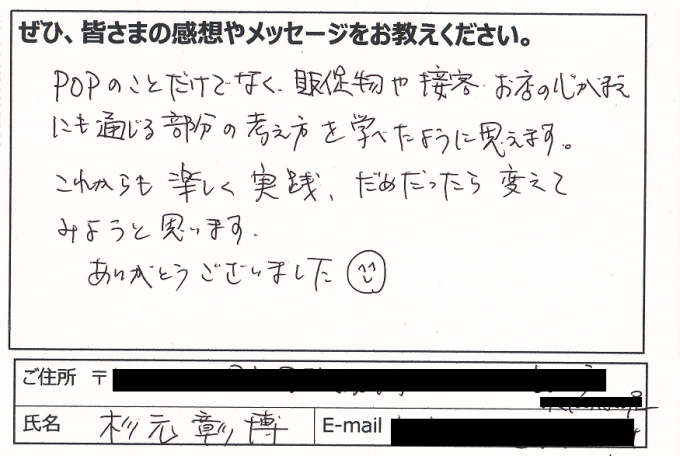 ぜひ、皆さまの感想やメッセージをお教えください。
POPのことだけでなく、販促物や接客、お店の心がまえ
にも通じる部分の考え方を学べたように思えます。
これからも楽しく実践、だめだったら変えて
みようと思います。
ありがとうございました
ご住所 〒
氏名 杉元彰博 E-mail